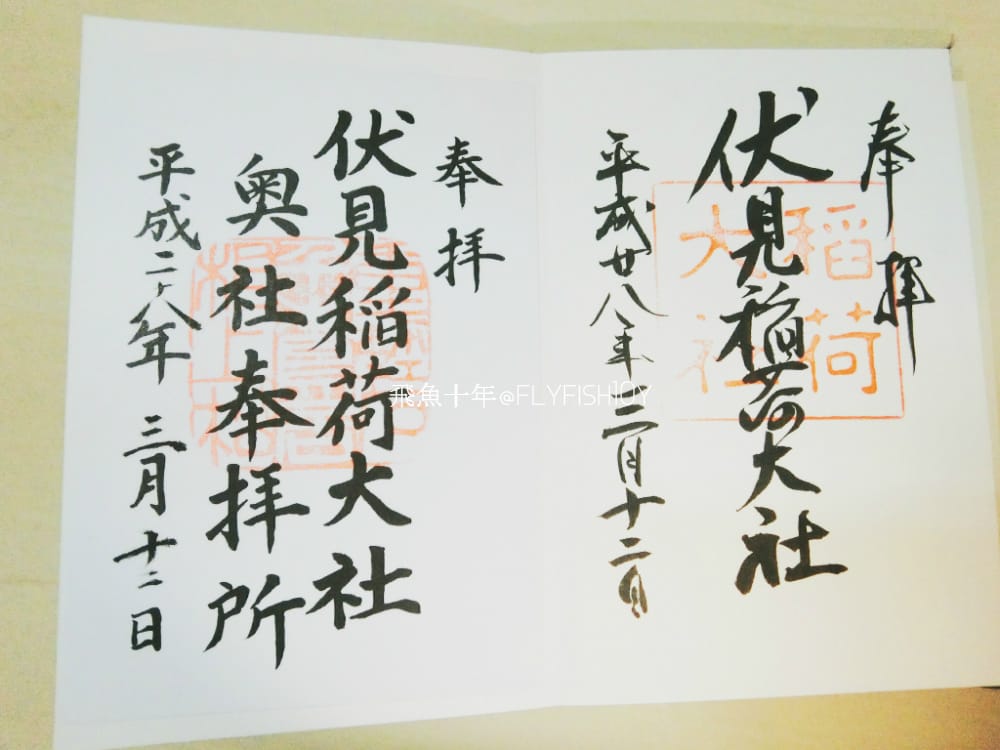 奉拝
伏見稲荷大社
平成廿八年三月十二日
稲荷
大社
奉拝
伏見稲荷大社
奥社奉拝所
平成二十八年 三月十二日
飛魚十年@FLYFISH10Y